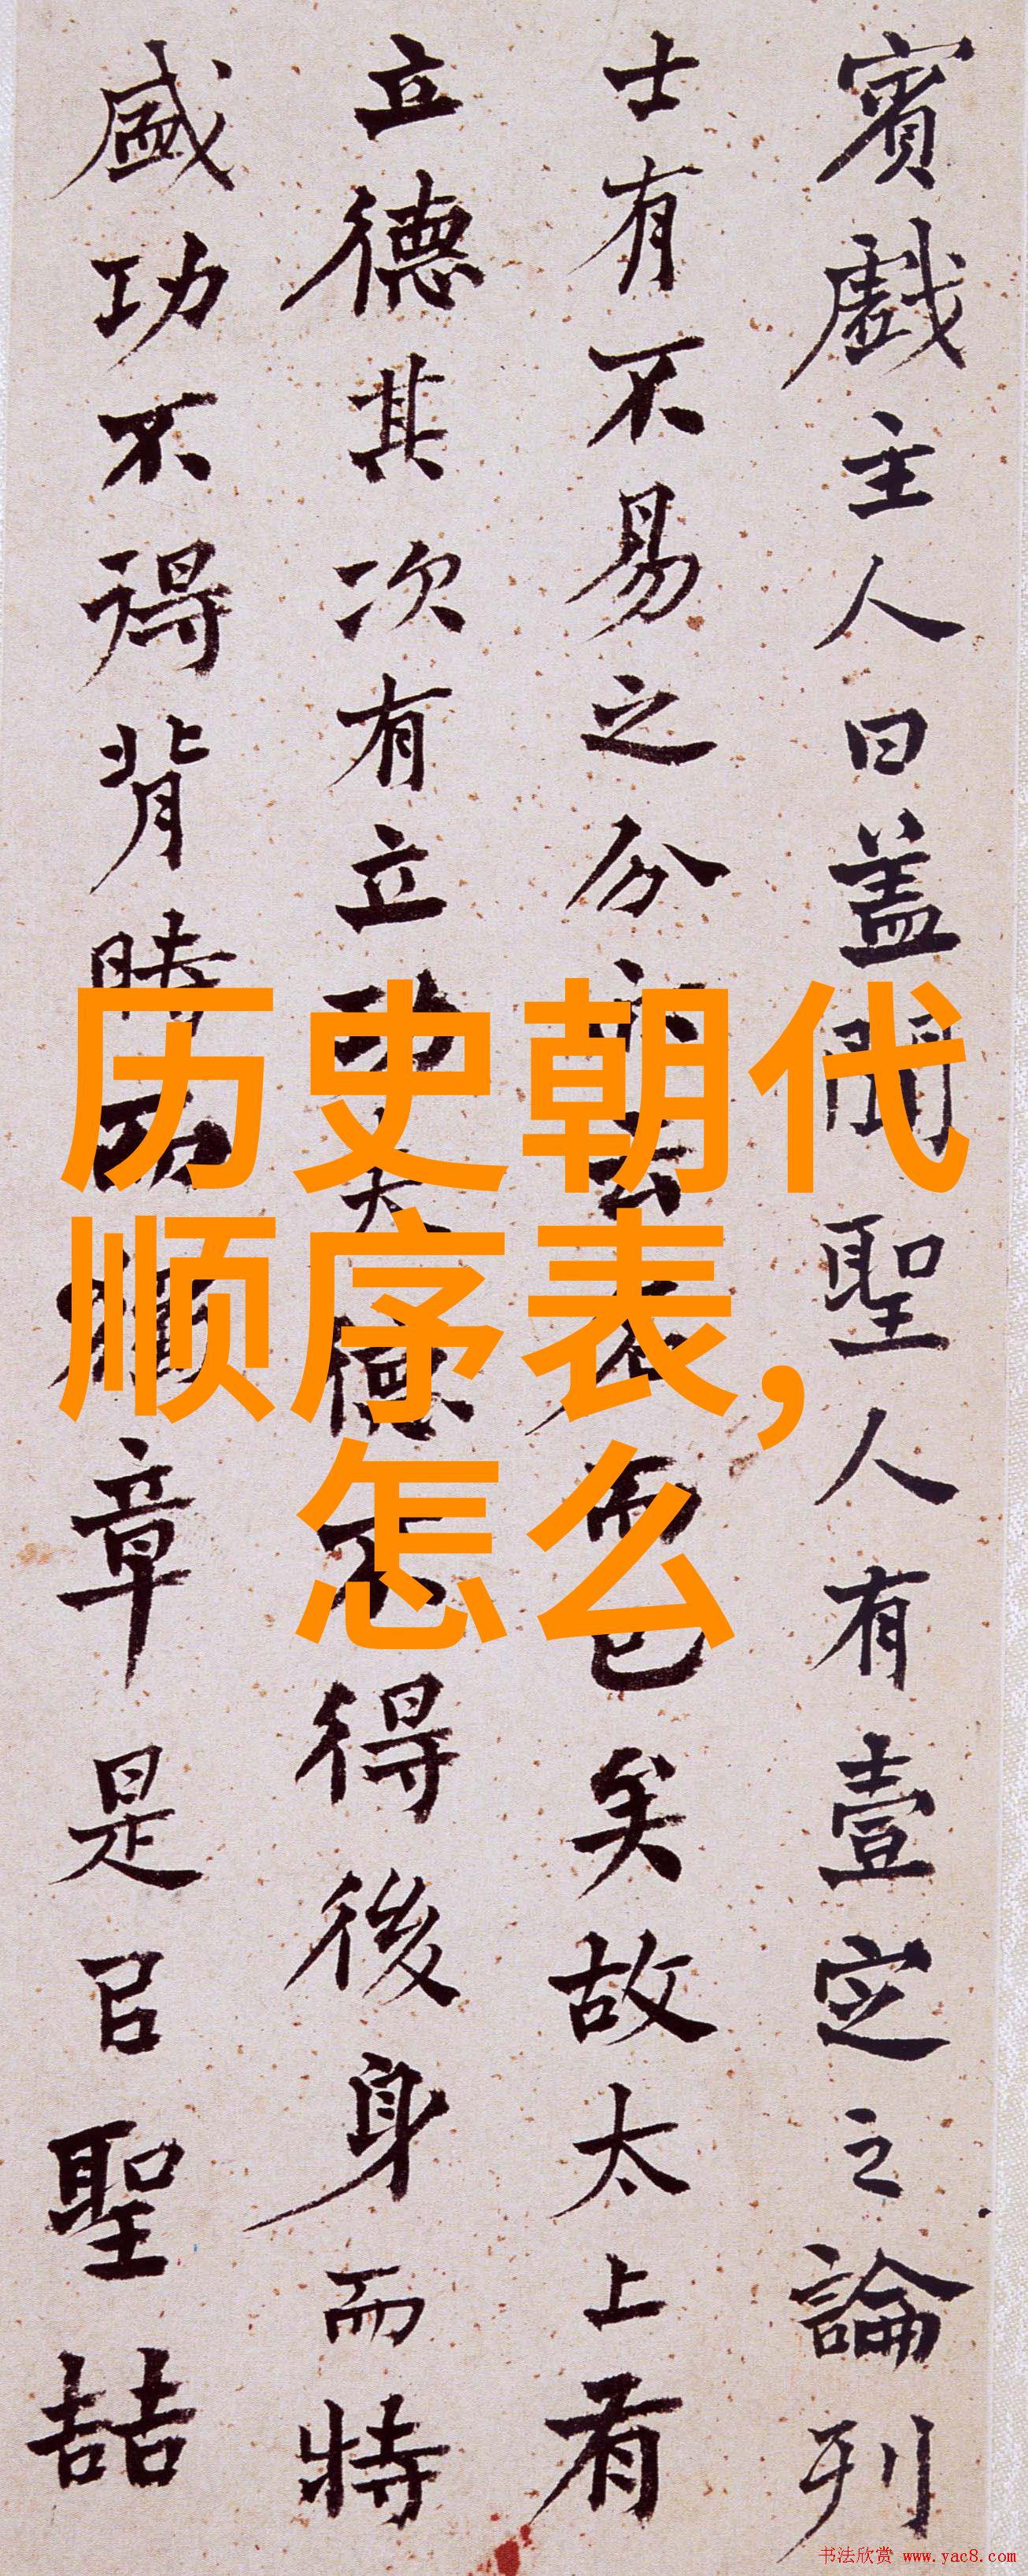 賓戲主人曰盖聞聖人有壹定之論列
士有不易之分亦云名而已矣故太上有
立德其次有立功夫德不得後身而特
盛功不得背時而獨章是㠯聖喆
历史朝代
顺序表,
怎么
书法欣赏 www.yac8.com